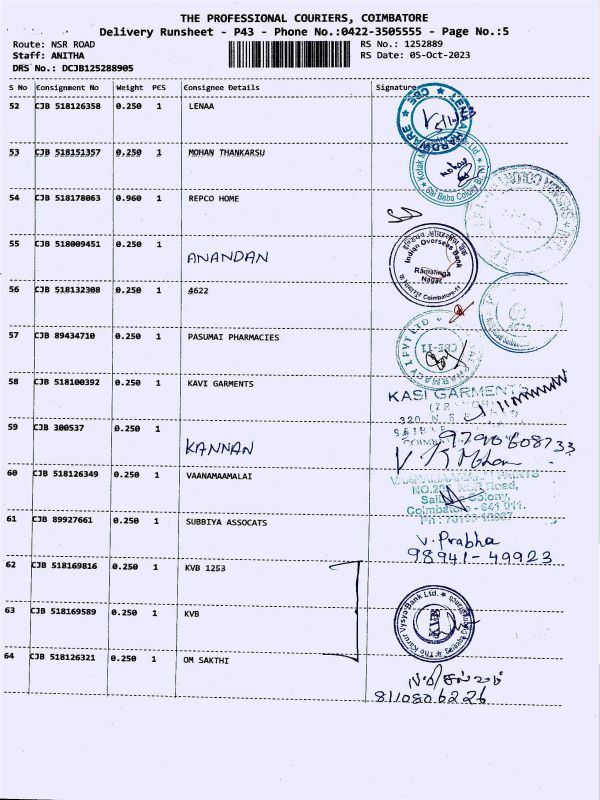 THE PROFESSIONAL COURIERS, COIMBATORE
Delivery Runsheet - P43 - Phone No.:0422-3505555 - Page No.:5
Route: NSR ROAD RS No.: 1252889
Staff: ANITHA RS Date: 05-Oct-2023
DRS No.: DCJB125288905
S No Consignment No Weight PCS Consignee Details Signature
52 CJB 518126358 0.250 1 LENAA
53 CJB 518151357 0.250 1 MOHAN THANKARSU
54 CJB 518178063 0.960 1 REPCO HOME
55 CJB 518009451 0.250 1 ANANDAN
Indian Overseas Bank
Ramalinga
Nagar
Coimbatore-11
56 CJB 518132308 0.250 1 4622
57 CJB 89434710 0.250 1 PASUMAI PHARMACIES
CBE-11
58 CJB 518100392 0.250 1 KAVI GARMENTS
KASI GARMENTS
59 CJB 300537 0.250 1 KANNAN
9790608733
60 CJB 518126349 0.250 1 VAANAMAAMALAI
Coimbatore - 641 011.
61 CJB 89927661 0.250 1 SUBBIYA ASSOCATS
V. Prabha
98941-49923
62 CJB 518169816 0.250 1 KVB 1253
63 CJB 518169589 0.250 1 KVB
The Karur Vysya Bank Ltd.
64 CJB 518126321 0.250 1 OM SAKTHI
8110806226